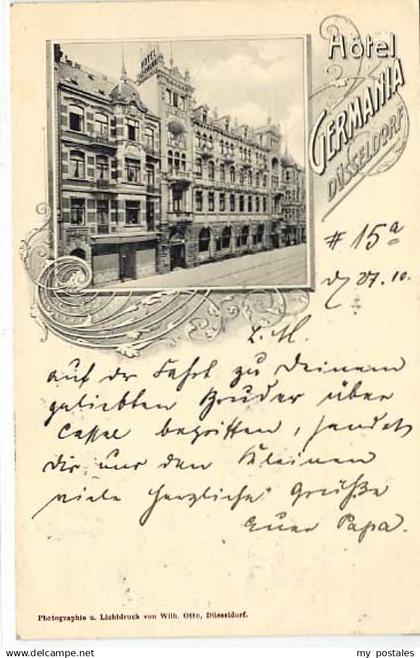 HOTEL
Hôtel
GERMANIA
DÜSSELDORF
# 15a
d 27. 10.
L. M.
auf der Fahrt zu Deinem
geliebten Bruder über
Cassel begriffen, sendet
Dir und den Kleinen
viele herzliche Grüße
Euer Papa.
Photographie u. Lichtdruck von Wilh. Otto, Düsseldorf.
www.my-postales.com